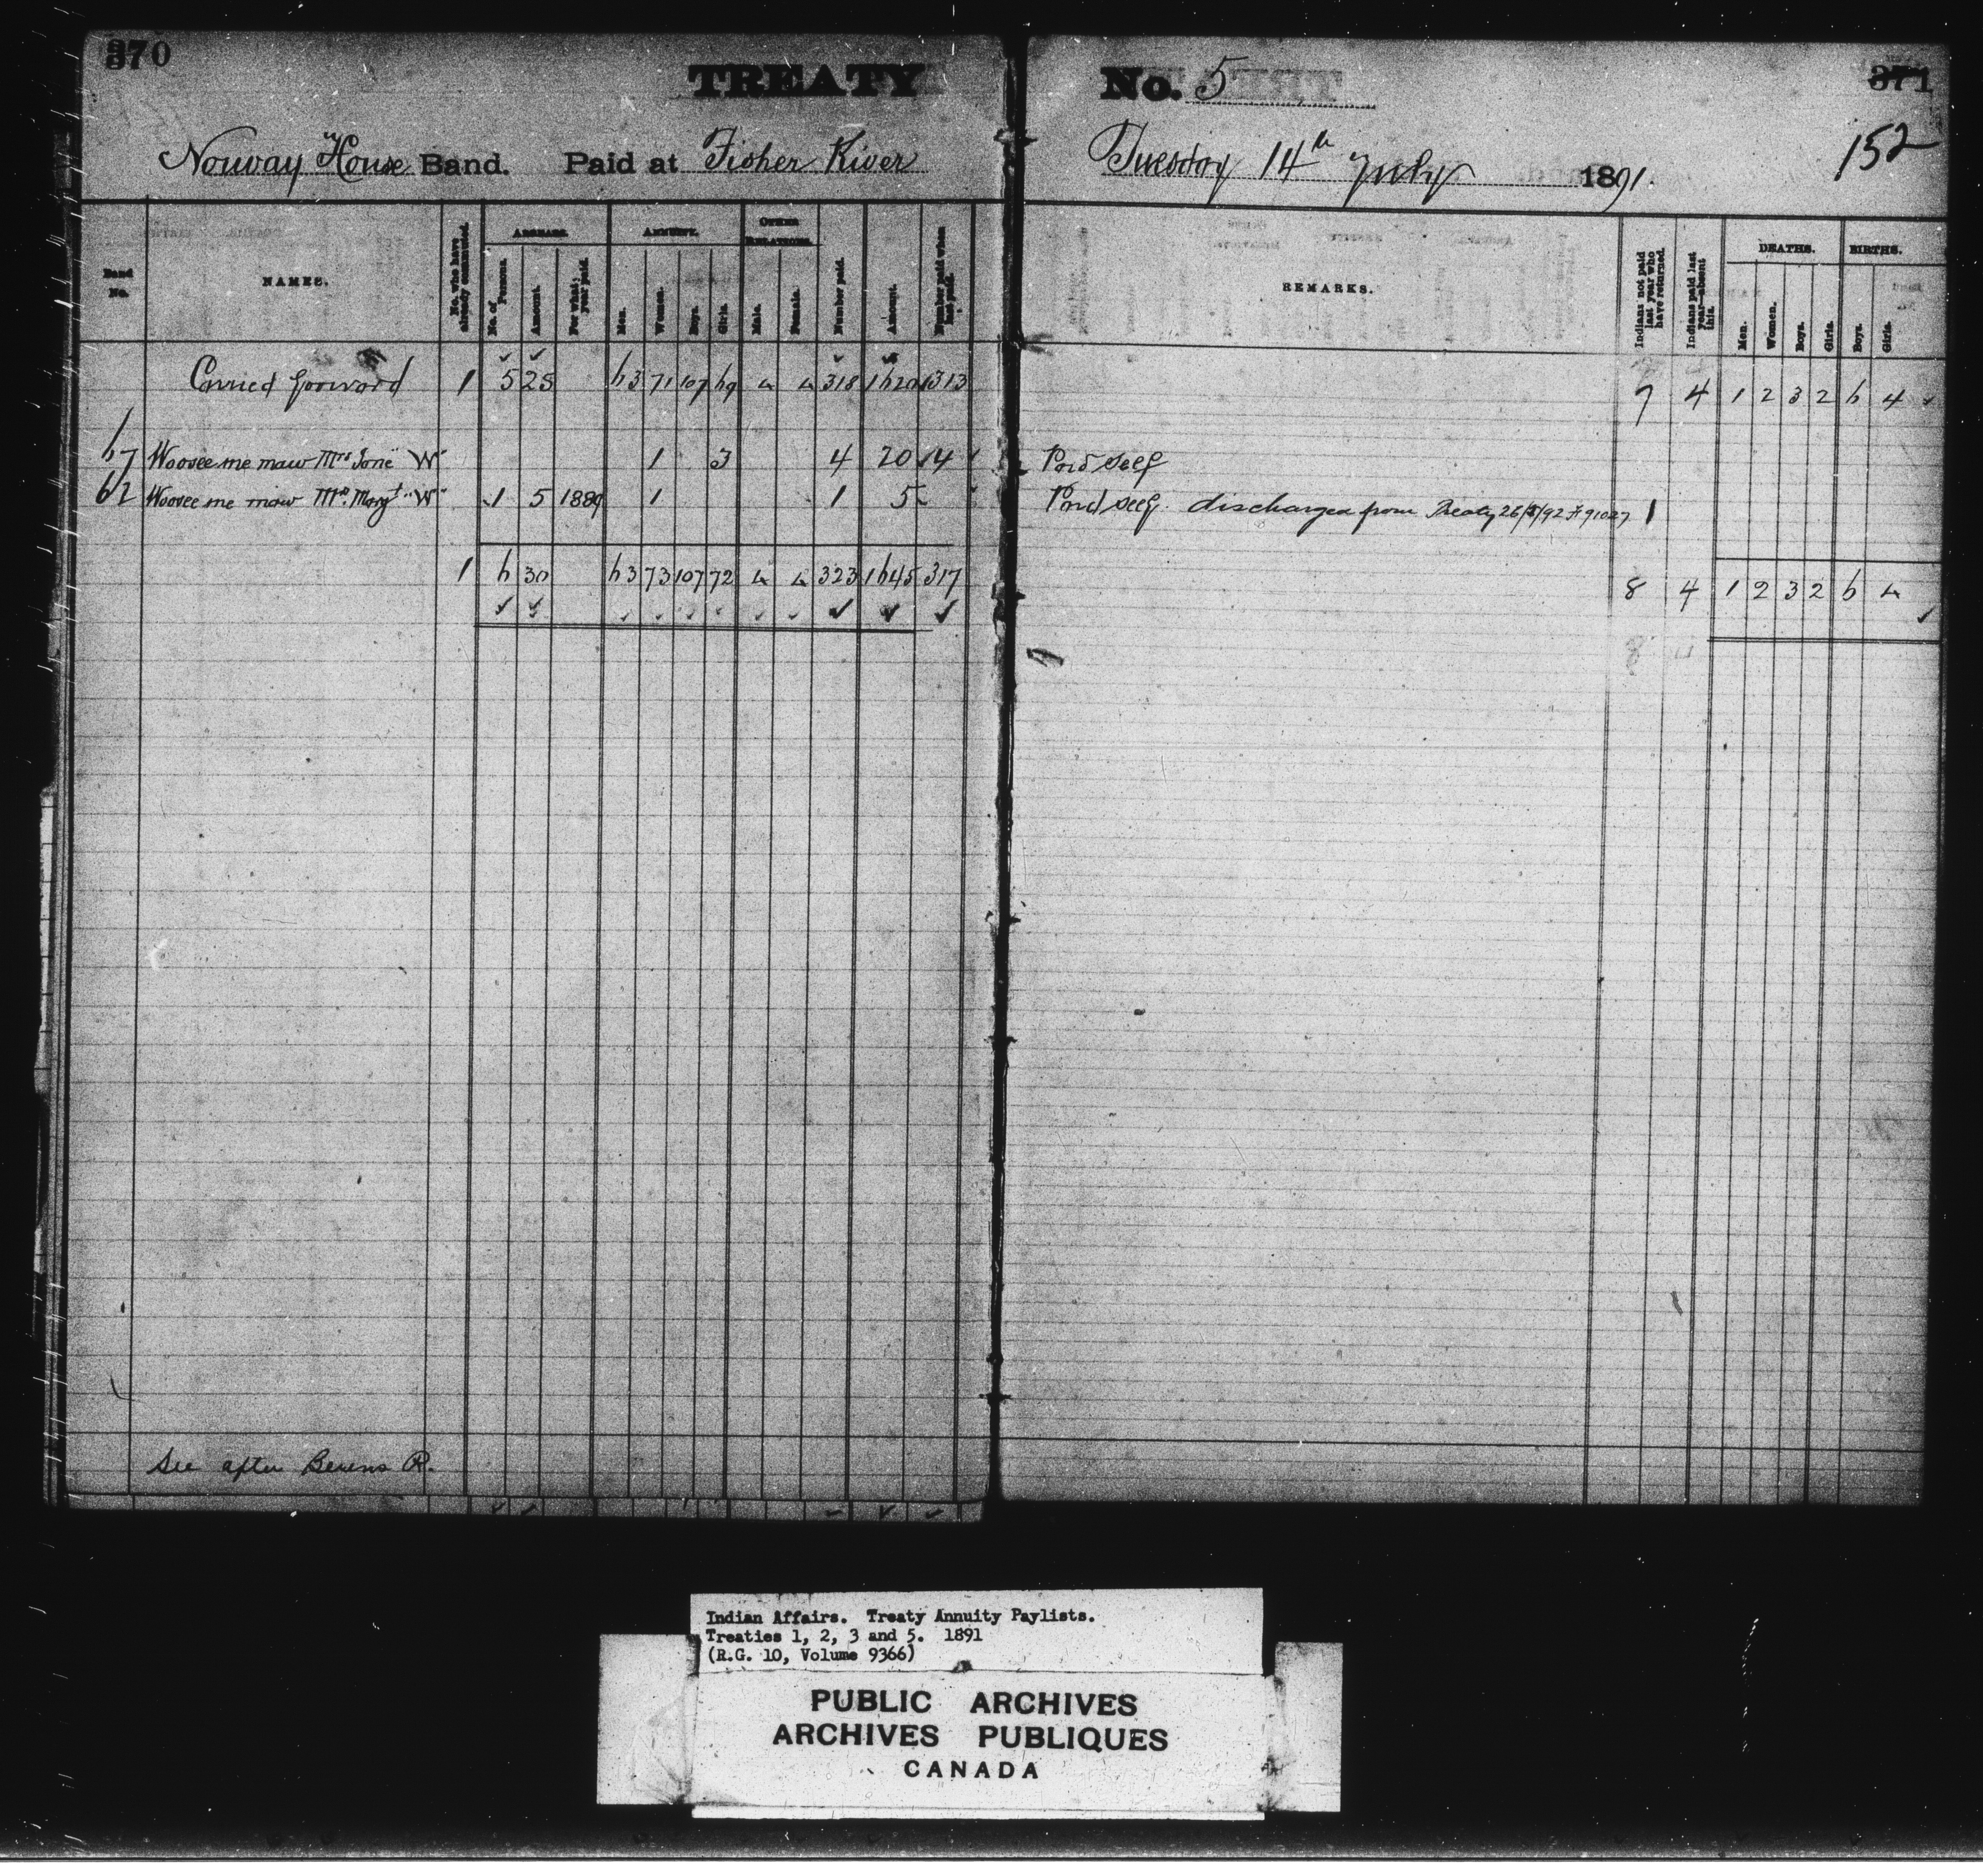 370
TREATY
Norway House Band. Paid at Fisher River
No. 5
371
Tuesday 14th July 1891.
152
Band No.
NAMES.
No. who have already commuted.
ARREARS.
No. of Persons.
Amount.
For what year paid.
ANNUITY.
Men.
Women.
Boys.
Girls.
OTHER RELATIONS.
Male.
Female.
Number paid.
Amount.
Number paid when last paid.
REMARKS.
Indians not paid last year who have returned.
Indians paid last year—absent this.
DEATHS.
Men.
Women.
Boys.
Girls.
BIRTHS.
Boys.
Girls.
Carried forward 1 5 25 63 71 107 69 4 4 318 1620 313 7 4 1 2 3 2 6 4
67 Woosee me maw Mrs Jane "W" 1 3 4 20 4 Paid self
62 Woosee me maw Mrs. Margt "W" 1 5 1889 1 1 5 Paid self. discharged from Treaty 1
1 6 30 63 73 107 72 4 4 323 1645 317 8 4 1 2 3 2 6 4
8
See after Berens R.
Indian Affairs. Treaty Annuity Paylists.
Treaties 1, 2, 3 and 5. 1891
(R.G. 10, Volume 9366)
PUBLIC ARCHIVES
ARCHIVES PUBLIQUES
CANADA